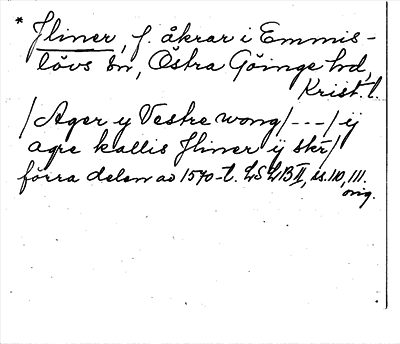 * Jliner, f. åkrar i Emmis-
lövs sn, Östra Göinge hd,
Krist. l.
/Ager y Vestre wong/---/ij
agre kallis Jliner ij skr/
förra delen av 1570-t. LSLB II, s. 110, 111.
orig.